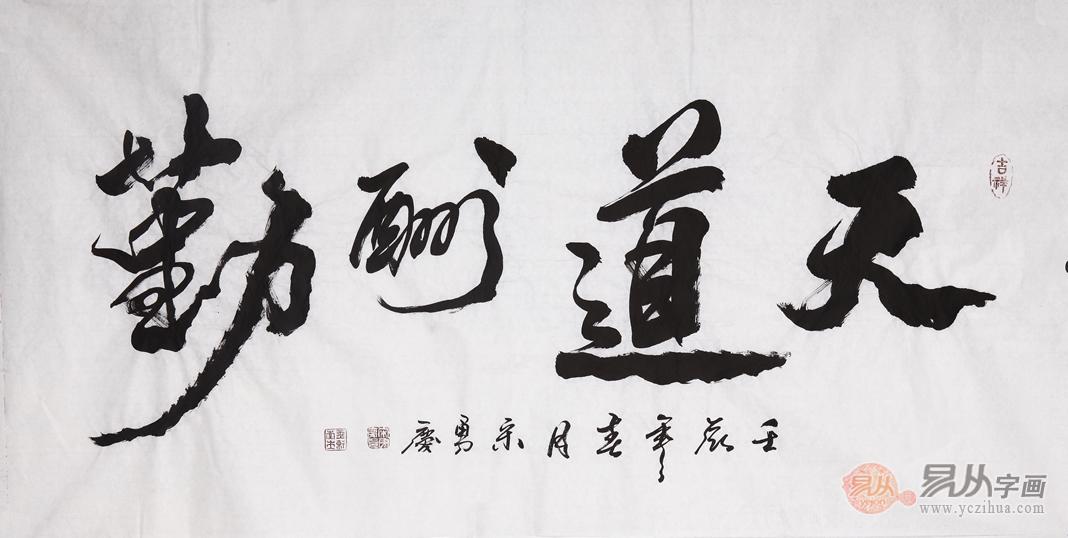 吉祥
天道酬勤
壬辰年春月宋勇慶
易从
易从字画
www.yczihua.com